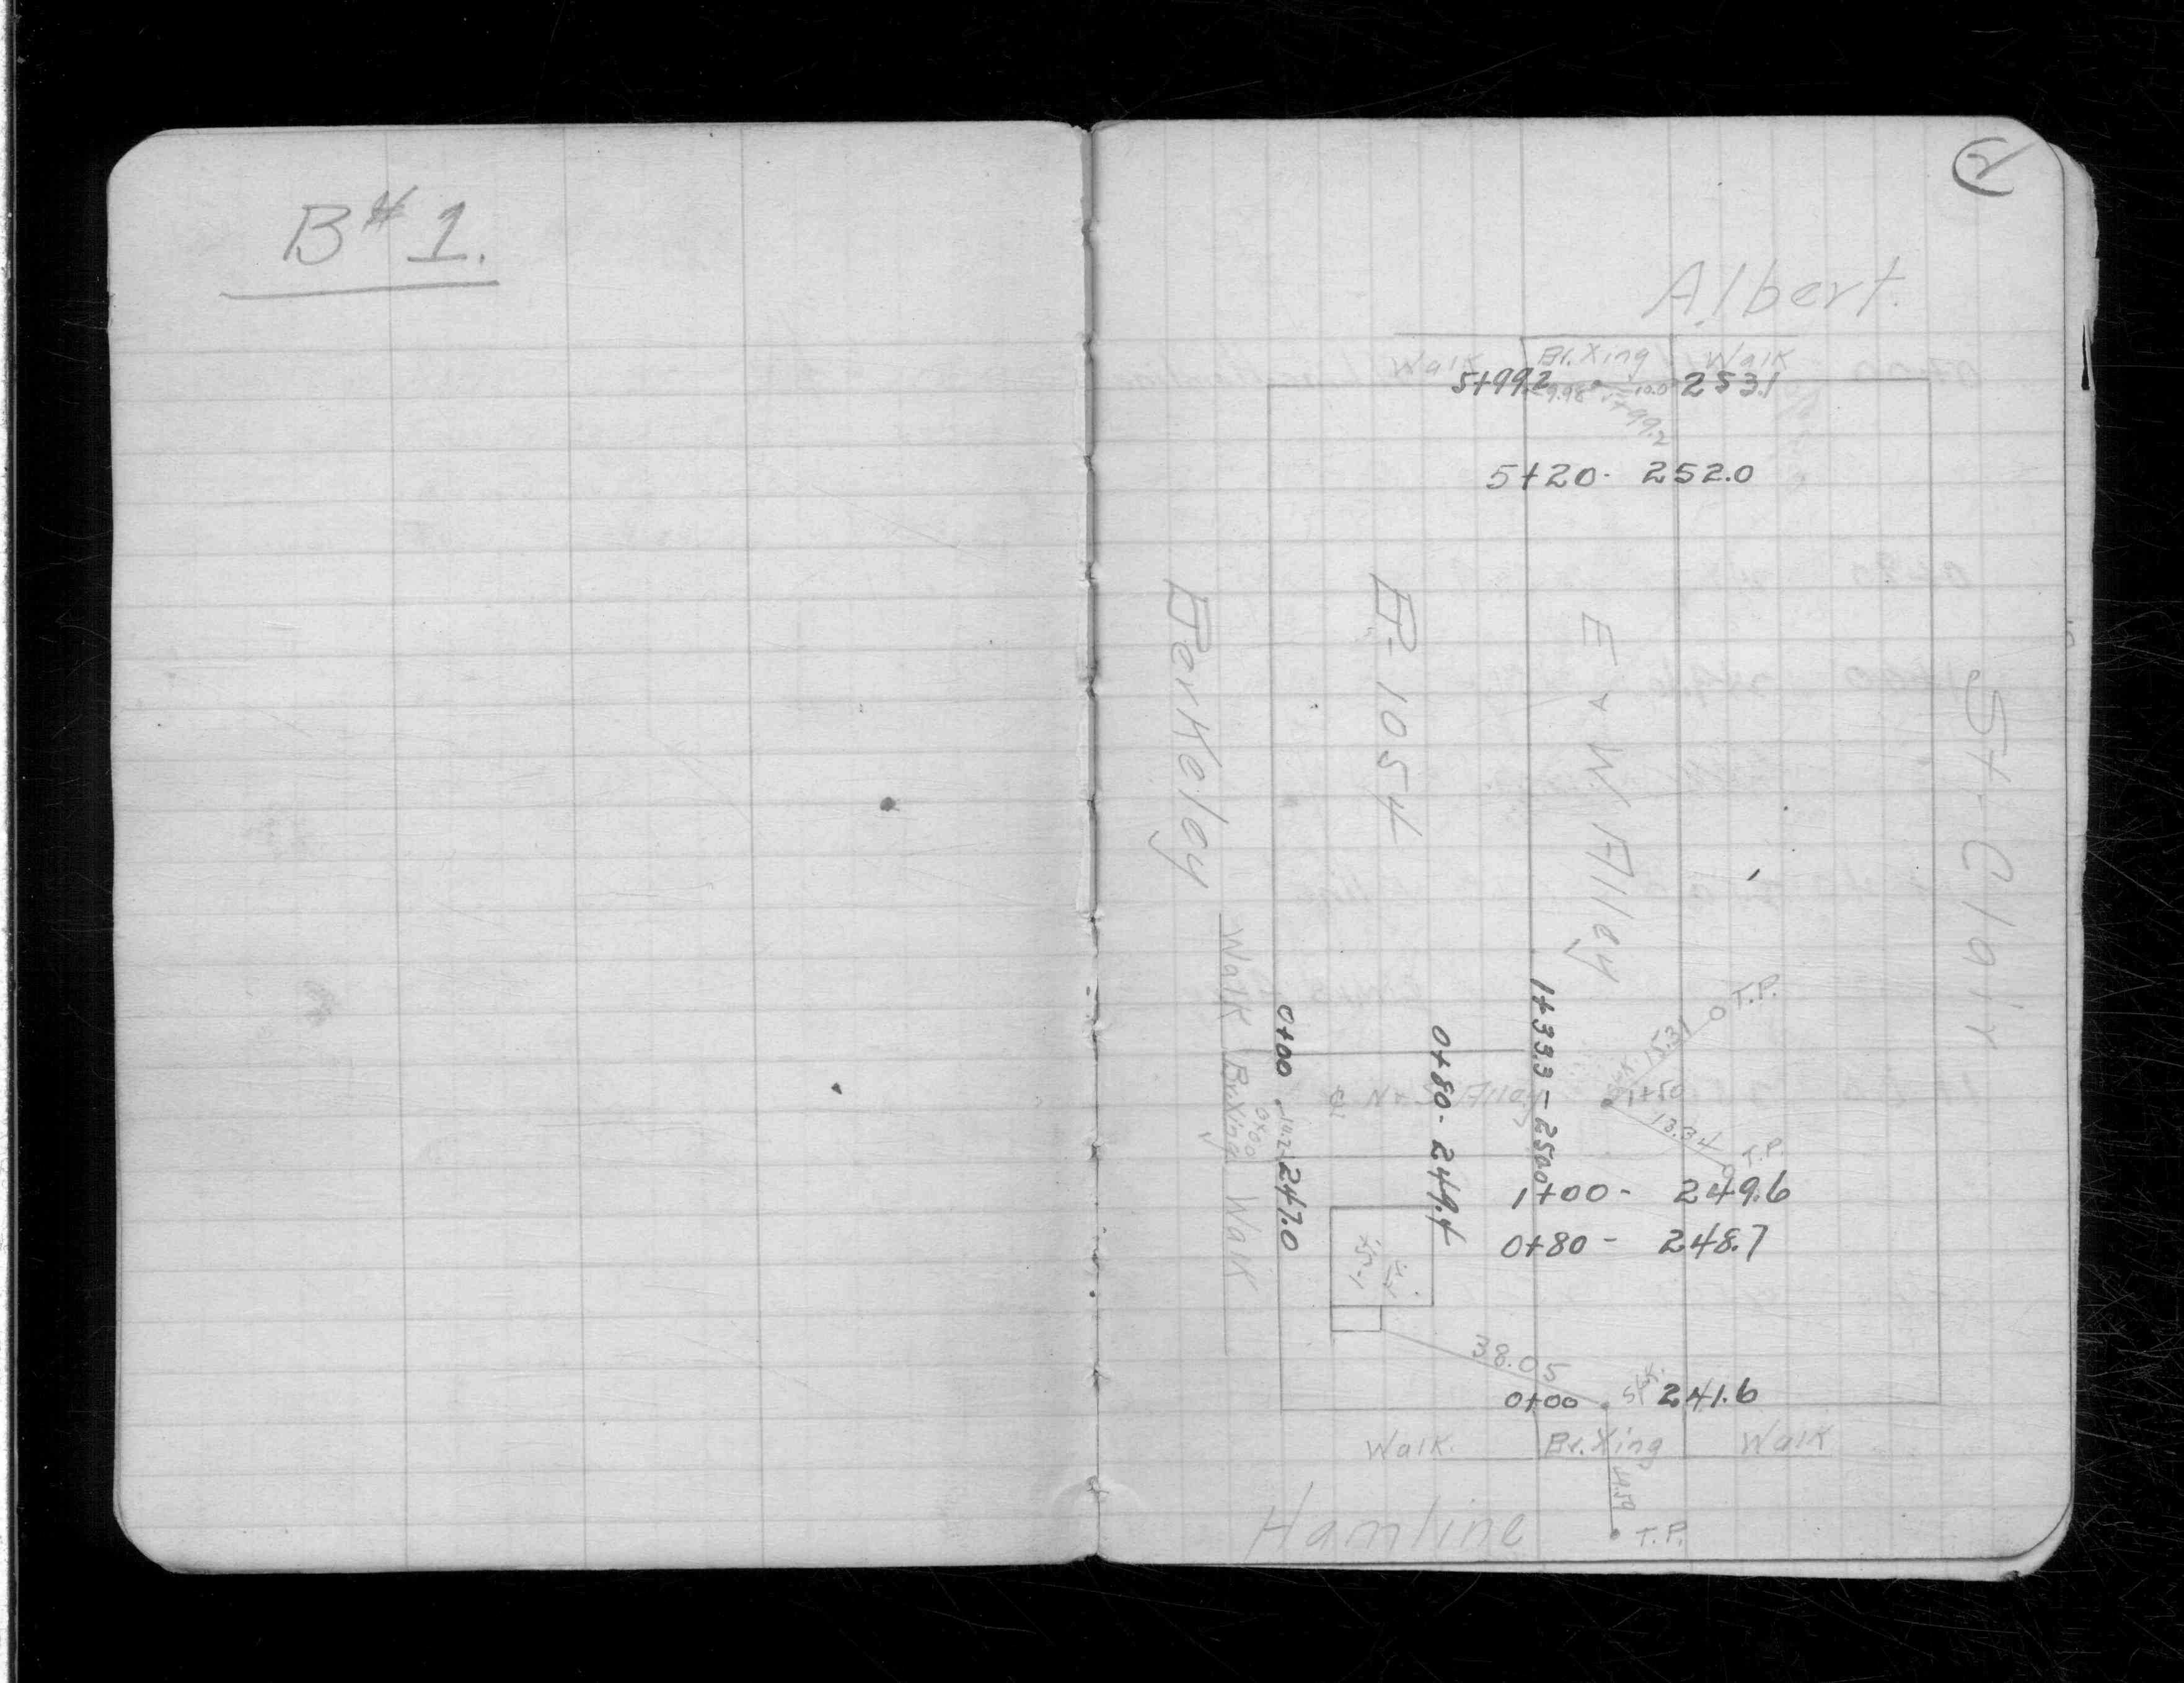 B# 1.
2
Albert.
Walk Br. Xing Walk
5+99.2 9.98 10.0 253.1
5+99.2
5+20- 252.0
Berkeley
B-1054
E & W Alley
St. Clair
Walk Br. Xing Walk
0+00
0+00 - 247.0
0+80 - 249.4
1+33.3 - 250.0
N & S Alley
T.P.
15.31
1+50
13.34
T.P.
1+00 - 249.6
0+80 - 248.7
38.05
0+00 Stk. 241.6
Walk. Br. Xing Walk
Hamline
T.P.